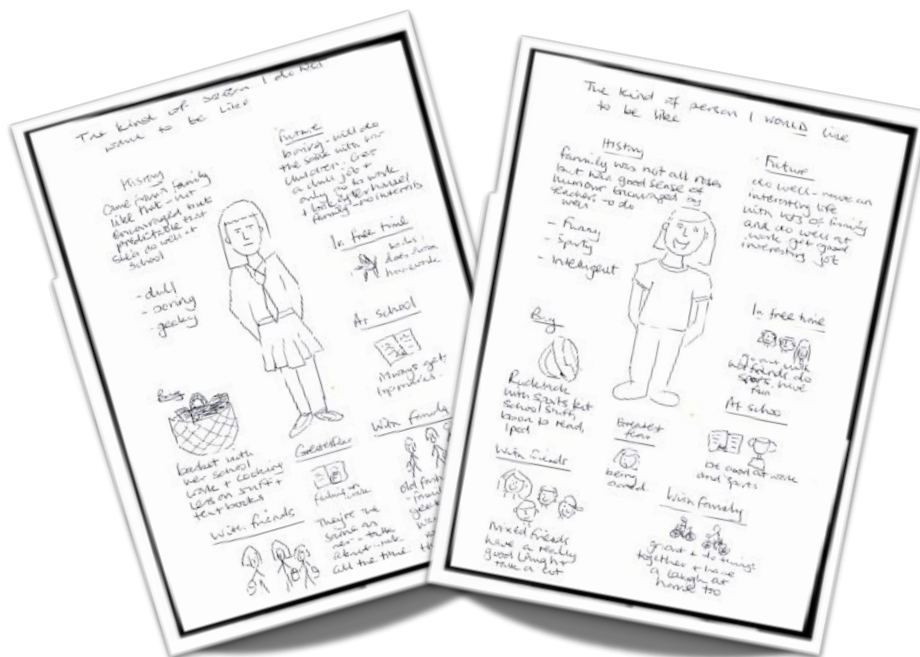 The kind of person I do NOT
want to be like
History
Came from a family
like that - not
encouraged but
predictable that
she'd do well at
school
- dull
- boring
- geeky
Bag
basket with
her school
work + cooking
lesson stuff +
textbooks
With friends
Future
boring - will do
the same with her
children. Get
a dull job +
only go to work
+ look after house/
family - no interests
In free time
homework
At school
Always gets
Greatest fear
failing
They're the
same as
her - talk
about work
all the time
With family
The kind of person I WOULD like
to be like
History
family was not all roses
but had good sense of
humour encouraged by
teachers to do
well
- Funny
- Sporty
- Intelligent
Bag
Rucksack
with sports kit
school stuff,
book to read,
ipod
With friends
Mixed friends
have a really
good laugh +
talk a lot
Greatest
fear
being
Future
do well - have an
interesting life
with lots of family
and do well at
work get good
interesting job
In free time
go out with
friends do
sports, have
fun
At school
be good at work
and sports
With family
go out + do things
together + have
a laugh at
home too